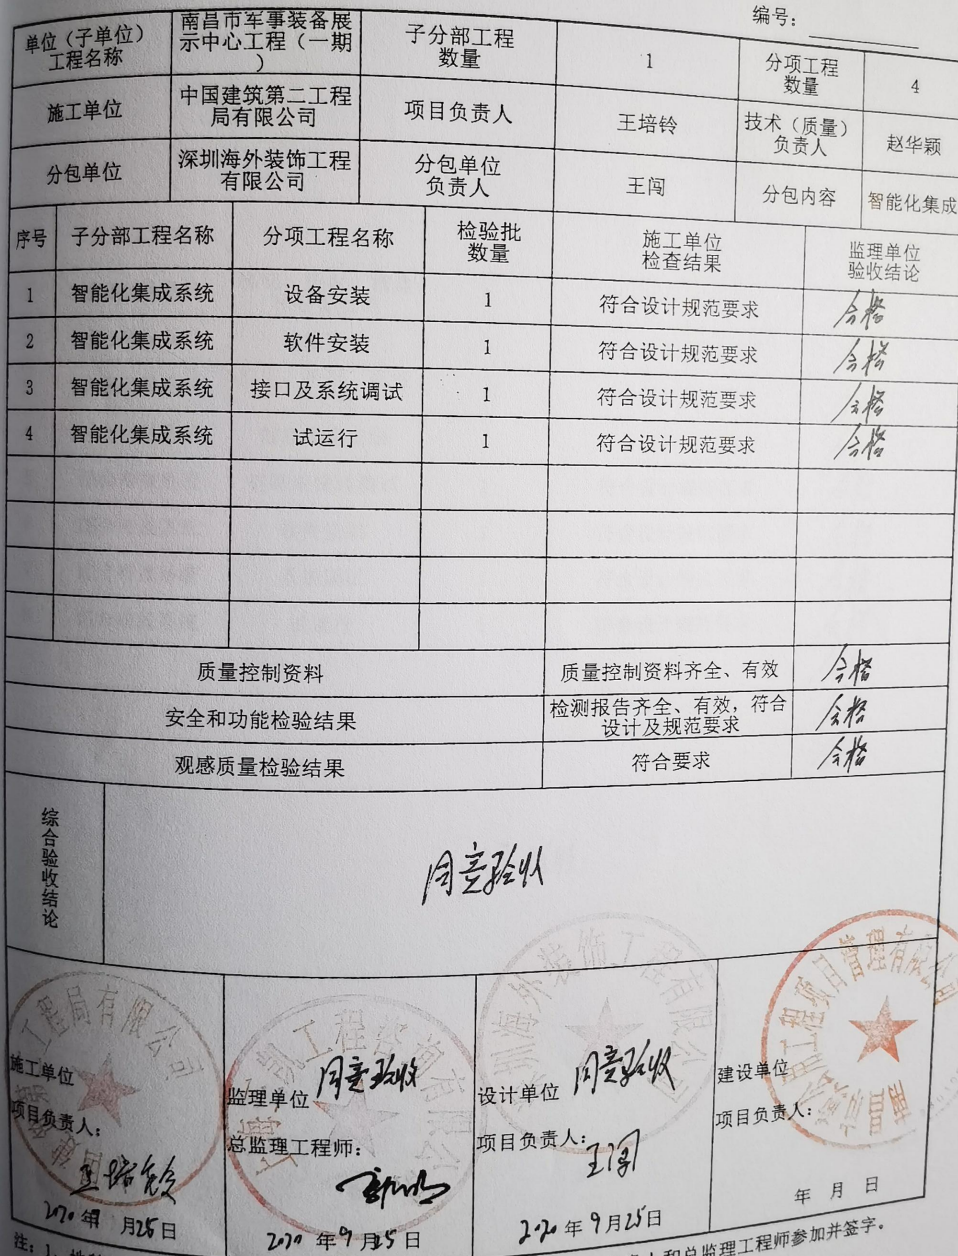 编号：
单位（子单位）
工程名称
南昌市军事装备展
示中心工程（一期
）
子分部工程
数量
1
分项工程
数量
4
施工单位
中国建筑第二工程
局有限公司
项目负责人
王培铃
技术（质量）
负责人
赵华颖
分包单位
深圳海外装饰工程
有限公司
分包单位
负责人
王闯
分包内容
智能化集成
序号
子分部工程名称
分项工程名称
检验批
数量
施工单位
检查结果
监理单位
验收结论
1
智能化集成系统
设备安装
1
符合设计规范要求
合格
2
智能化集成系统
软件安装
1
符合设计规范要求
合格
3
智能化集成系统
接口及系统调试
1
符合设计规范要求
合格
4
智能化集成系统
试运行
1
符合设计规范要求
合格
质量控制资料
质量控制资料齐全、有效
合格
安全和功能检验结果
检测报告齐全、有效，符合
设计及规范要求
合格
观感质量检验结果
符合要求
合格
综合验收结论
同意验收
施工单位
项目负责人：
王培铃
2020年9月25日
监理单位
同意验收
总监理工程师：
2020年9月25日
设计单位
同意验收
项目负责人：
王闯
2020年9月25日
建设单位
项目负责人：
年 月 日
工程局有限公司
工程咨询有限公
圳海外装饰工程有限公
工程项目管理有限公司
注：1、
人和总监理工程师参加并签字。